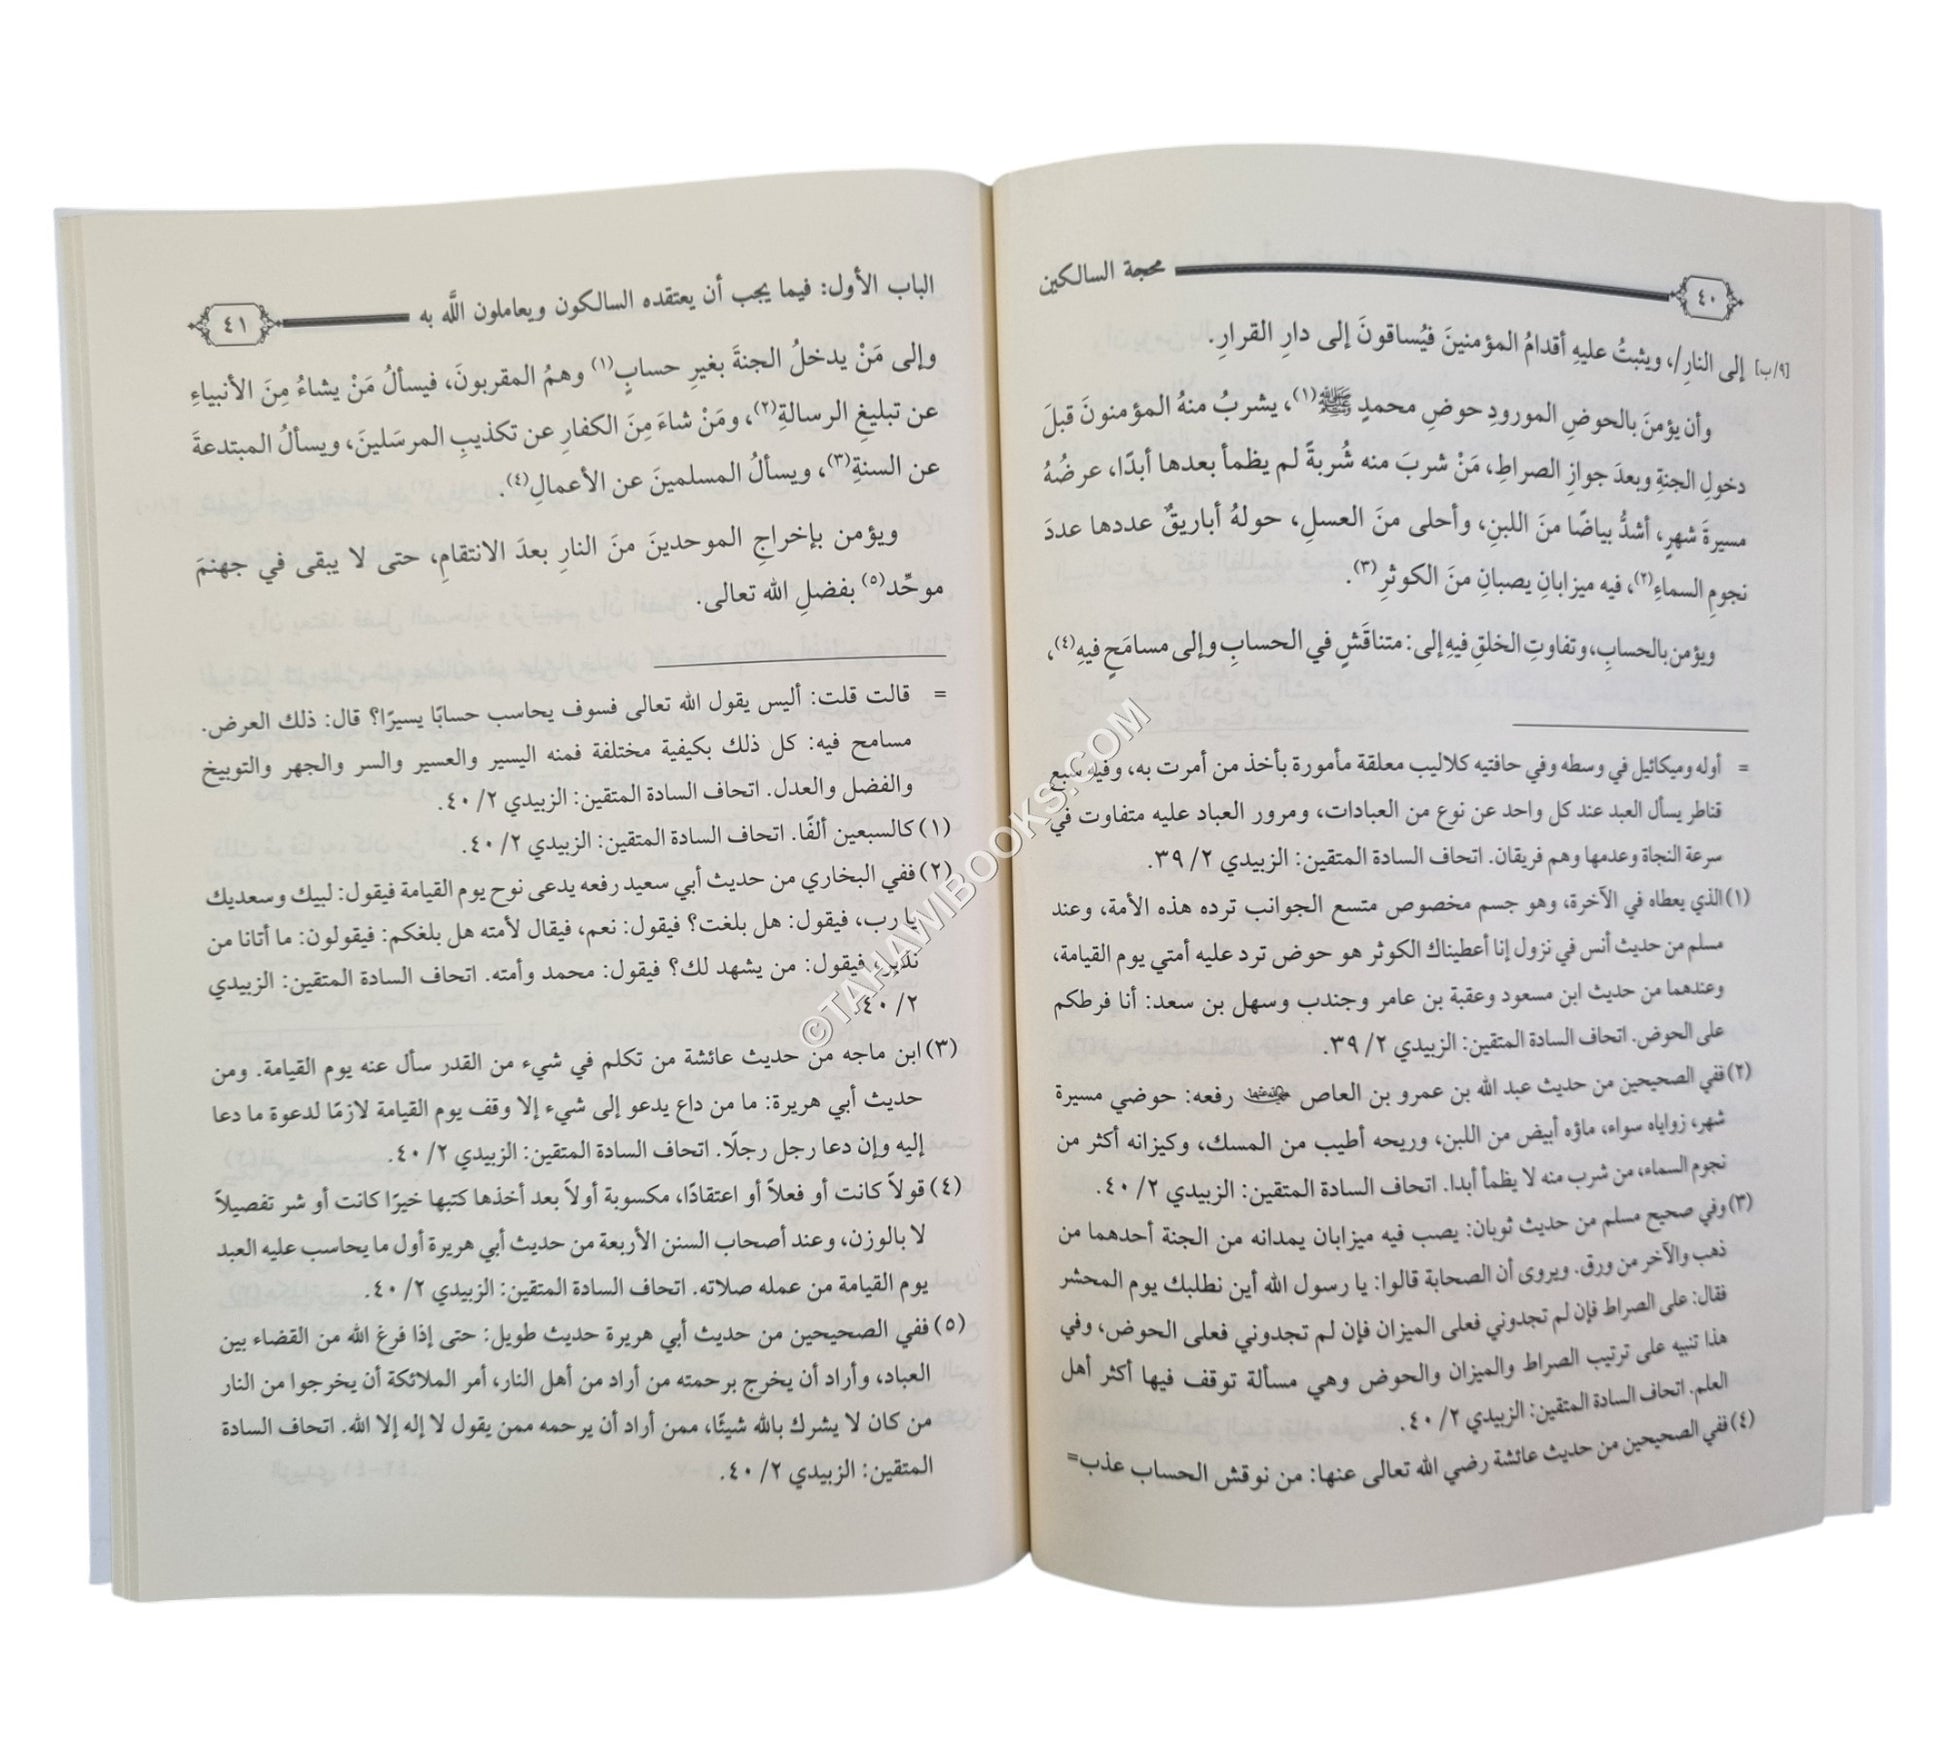 ٤٠ محجة السالكين
[٩/ب] إلى النارِ/، ويثبتُ عليهِ أقدامُ المؤمنينَ فيُساقونَ إلى دارِ القرارِ.
وأن يؤمنَ بالحوضِ المورودِ حوضِ محمدٍ ﷺ(١)، يشربُ منهُ المؤمنونَ قبلَ
دخولِ الجنةِ وبعدَ جوازِ الصراطِ، مَنْ شربَ منه شُربةً لم يظمأ بعدها أبدًا، عرضُهُ
مسيرةَ شهرٍ، أشدُّ بياضًا منَ اللبنِ، وأحلى منَ العسلِ، حولهُ أباريقٌ عددها عددَ
نجومِ السماءِ(٢)، فيه ميزابانِ يصبانِ منَ الكوثرِ(٣).
ويؤمن بالحسابِ، وتفاوتِ الخلقِ فيهِ إلى: متناقَشٍ في الحسابِ وإلى مسامَحٍ فيهِ(٤)،
= أوله وميكائيل في وسطه وفي حافتيه كلاليب معلقة مأمورة بأخذ من أمرت به، وفيه سبع
قناطر يسأل العبد عند كل واحد عن نوع من العبادات، ومرور العباد عليه متفاوت في
سرعة النجاة وعدمها وهم فريقان. اتحاف السادة المتقين: الزبيدي ٢/ ٣٩.
(١) الذي يعطاه في الآخرة، وهو جسم مخصوص متسع الجوانب ترده هذه الأمة، وعند
مسلم من حديث أنس في نزول إنا أعطيناك الكوثر هو حوض ترد عليه أمتي يوم القيامة،
وعندهما من حديث ابن مسعود وعقبة بن عامر وجندب وسهل بن سعد: أنا فرطكم
على الحوض. اتحاف السادة المتقين: الزبيدي ٢/ ٣٩.
(٢) ففي الصحيحين من حديث عبد الله بن عمرو بن العاص رضي الله عنهما رفعه: حوضي مسيرة
شهر، زواياه سواء، ماؤه أبيض من اللبن، وريحه أطيب من المسك، وكيزانه أكثر من
نجوم السماء، من شرب منه لا يظمأ أبدا. اتحاف السادة المتقين: الزبيدي ٢/ ٤٠.
(٣) وفي صحيح مسلم من حديث ثوبان: يصب فيه ميزابان يمدانه من الجنة أحدهما من
ذهب والآخر من ورق. ويروى أن الصحابة قالوا: يا رسول الله أين نطلبك يوم المحشر
فقال: على الصراط فإن لم تجدوني فعلى الميزان فإن لم تجدوني فعلى الحوض، وفي
هذا تنبيه على ترتيب الصراط والميزان والحوض وهي مسألة توقف فيها أكثر أهل
العلم. اتحاف السادة المتقين: الزبيدي ٢/ ٤٠.
(٤) ففي الصحيحين من حديث عائشة رضي الله تعالى عنها: من نوقش الحساب عذب=
الباب الأول: فيما يجب أن يعتقده السالكون ويعاملون اللَّه به ٤١
وإلى مَنْ يدخلُ الجنةَ بغيرِ حسابٍ(١) وهمُ المقربونَ، فيسألُ مَنْ يشاءُ مِنَ الأنبياءِ
عن تبليغِ الرسالةِ(٢)، ومَنْ شاءَ مِنَ الكفارِ عن تكذيبِ المرسَلينَ، ويسألُ المبتدعةَ
عن السنةِ(٣)، ويسألُ المسلمينَ عن الأعمالِ(٤).
ويؤمن بإخراجِ الموحدينَ منَ النارِ بعدَ الانتقامِ، حتى لا يبقى في جهنمَ
موحِّد(٥) بفضلِ الله تعالى.
= قالت قلت: أليس يقول الله تعالى فسوف يحاسب حسابًا يسيرًا؟ قال: ذلك العرض.
مسامح فيه: كل ذلك بكيفية مختلفة فمنه اليسير والعسير والسر والجهر والتوبيخ
والفضل والعدل. اتحاف السادة المتقين: الزبيدي ٢/ ٤٠.
(١) كالسبعين ألفًا. اتحاف السادة المتقين: الزبيدي ٢/ ٤٠.
(٢) ففي البخاري من حديث أبي سعيد رفعه يدعى نوح يوم القيامة فيقول: لبيك وسعديك
يا رب، فيقول: هل بلغت؟ فيقول: نعم، فيقال لأمته هل بلغكم: فيقولون: ما أتانا من
نذير، فيقول: من يشهد لك؟ فيقول: محمد وأمته. اتحاف السادة المتقين: الزبيدي
٢/ ٤٠.
(٣) ابن ماجه من حديث عائشة من تكلم في شيء من القدر سأل عنه يوم القيامة. ومن
حديث أبي هريرة: ما من داع يدعو إلى شيء إلا وقف يوم القيامة لازمًا لدعوة ما دعا
إليه وإن دعا رجل رجلًا. اتحاف السادة المتقين: الزبيدي ٢/ ٤٠.
(٤) قولاً كانت أو فعلاً أو اعتقادًا، مكسوبة أولاً بعد أخذها كتبها خيرًا كانت أو شر تفصيلاً
لا بالوزن، وعند أصحاب السنن الأربعة من حديث أبي هريرة أول ما يحاسب عليه العبد
يوم القيامة من عمله صلاته. اتحاف السادة المتقين: الزبيدي ٢/ ٤٠.
(٥) ففي الصحيحين من حديث أبي هريرة حديث طويل: حتى إذا فرغ الله من القضاء بين
العباد، وأراد أن يخرج برحمته من أراد من أهل النار، أمر الملائكة أن يخرجوا من النار
من كان لا يشرك بالله شيئًا، ممن أراد أن يرحمه ممن يقول لا إله إلا الله. اتحاف السادة
المتقين: الزبيدي ٢/ ٤٠.
©TAHAWIBOOKS.COM